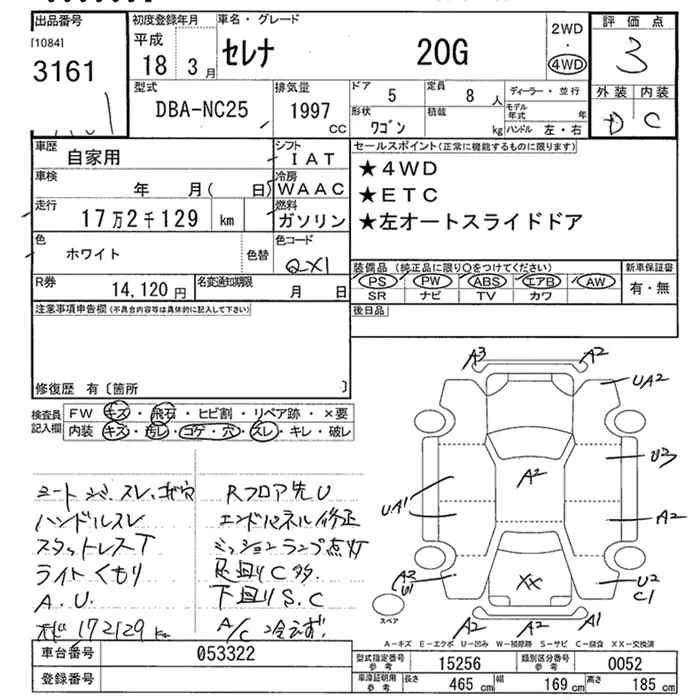 出品番号 初度登録年月 車名・グレード 2WD 評価点
[1084] 平成 ・
3161 18 3月 セレナ 20G 4WD 3
型式 排気量 ドア 5 定員 8人 ディーラー・並行 外装 内装
DBA-NC25 1997 CC 形状 ワゴン 積載 kg モデル年式 年 D C
ハンドル 左・右
車歴 自家用 シフト IAT セールスポイント(正常に機能するものに限ります)
車検 年 月(日) 冷房 WAAC ★4WD
走行 17万2千129 km 燃料 ガソリン ★ETC
★左オートスライドドア
色 ホワイト 色替 色コード QX1
装備品(純正品に限り○をつけてください) 新車保証書
R券 14,120円 名変通知期限 月 日 PS PW ABS エアB AW 有・無
SR ナビ TV カワ
注意事項申告欄(不具合内容等は具体的に記入して下さい) 後日品
修復歴 有〔箇所 〕
検査員記入欄 FW キズ・飛石・ヒビ割・リペア跡・×要
内装 キズ・汚レ・コゲ・穴・スレ・キレ・破レ
シートシミ、スレ、コゲ穴 Rフロア先U
ハンドルスレ エンドパネル修正
スタットレスT ミッションランプ点灯
ライトくもり 足回りC多
A.U. 下回りS.C
172129 km A/C冷えず.
A3 A2
UA2
A2 U3
UA1 A2
A2 U1 XX U2 C1
スペア A2 A2 A1
A-キズ E-エクボ U-凹み W-補修跡 S-サビ C-腐食 XX-交換済
車台番号 053322 型式指定番号 参考 15256 類別区分番号 参考 0052
登録番号 車庫証明用 参考 長さ 465 cm 幅 169 cm 高さ 185 cm